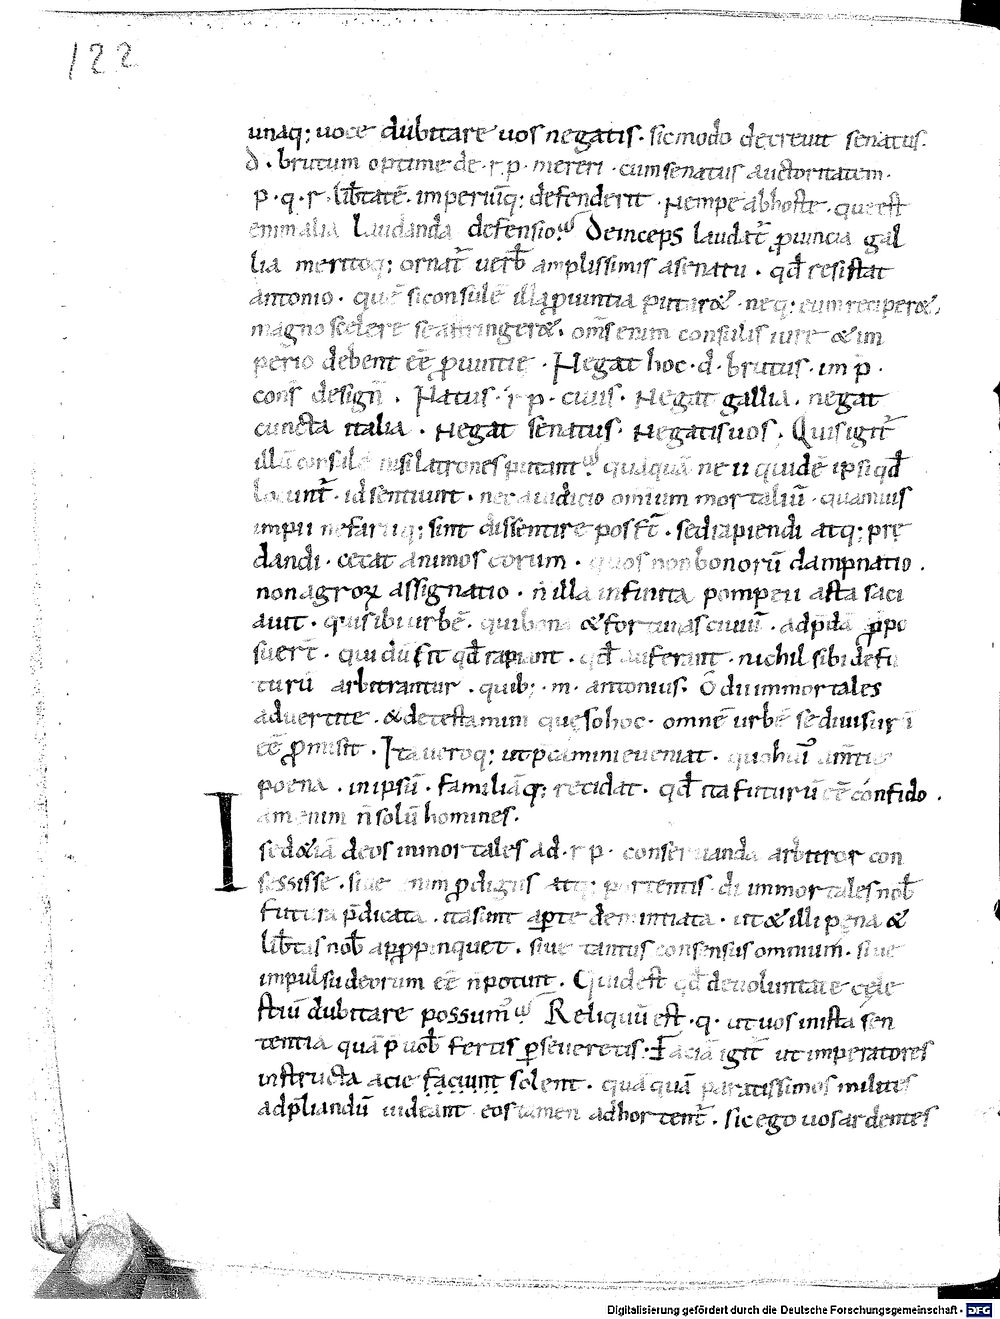 122
unaq; uoce dubitare uos negatis. sicmodo decreuit senatus.
d. brutum optime de .r.p. mereri. cum senatus auctoritatem.
p.q.r. lib̄tatē. imperiūq; defenderit. Nempe abhoste. que est
enim alia laudanda defensio. Deinceps laudat̄ ꝓuincia gal
lia meritoq; ornat̄ uerb̄ amplissimis asenatu. qd̄ resistat
antonio. quē siconsulē illa ꝓuintia putar&. neq; eum reciper&.
magno scelere se astringer&. om̄s enim consulis iure & im
perio debent eē ꝓuintie. Negat hoc .d. brutus. im p.
cons̄ design̄. Natus .r p. ciuis. Negat gallia. negat
cuncta italia. Negat senatus. Negatis uos. Quis igit̄
illū consulē nisi latrones putant quāquā ne ii quidē ipsi qd̄
locunt̄. id sentiunt. nec a iudicio omnium mortaliū. quamuis
impii nefariiq; sint dissentire posst̄. sed rapiendi atq; prę
dandi. cecat animos eorum. quos non bonorū dampnatio.
non agroꝝ assignatio. n̄ illa infinita pompeii asta saci
auit. qui sibi urbē. qui bona & fortunas ciuiū. ad p̄dā ꝓpo
suert̄. qui dū sit qd̄ rapiant. qd̄ auferant. nichil sibi defu
turū arbitrantur. quib; .m. antonius. O dii immortales
aduertite. & detestamini quęso hoc. omnē urbē se diuisur ī
eē ꝓmisit. Ita ueroq; ut p̄camini eueniat.
poena. in ipsū. familiāq; recidat. qd̄ ita futurū eē confido.
Iam enim n̄ solū homines.
sed &iā deos inmortales ad .r p. conseruanda arbitror con
sessisse. siue enim ꝓdigiis atq; portentis. di immortales nob̄
futura p̄dicata. ita sint aꝑte denuntiata. ut & illi pena &
lib̄tas nob̄ apꝓpinquet. siue tantus consensus omnium. siue
impulsu deorum eē n̄ potuit. Quid est qd̄ de uoluntate cęle
stiū dubitare possum̄ Reliquū est .q. ut uos in ista sen
tentia quā p̄ uob̄ fertis ꝑseueretis. Faciā igit̄ ut imperatores
instructa acie faciunt solent. quāquā paratissimos milites
ad p̄liandū uideant eos tamen adhortent̄. sic ego uos ardentes
Digitalisierung gefördert durch die Deutsche Forschungsgemeinschaft - DFG